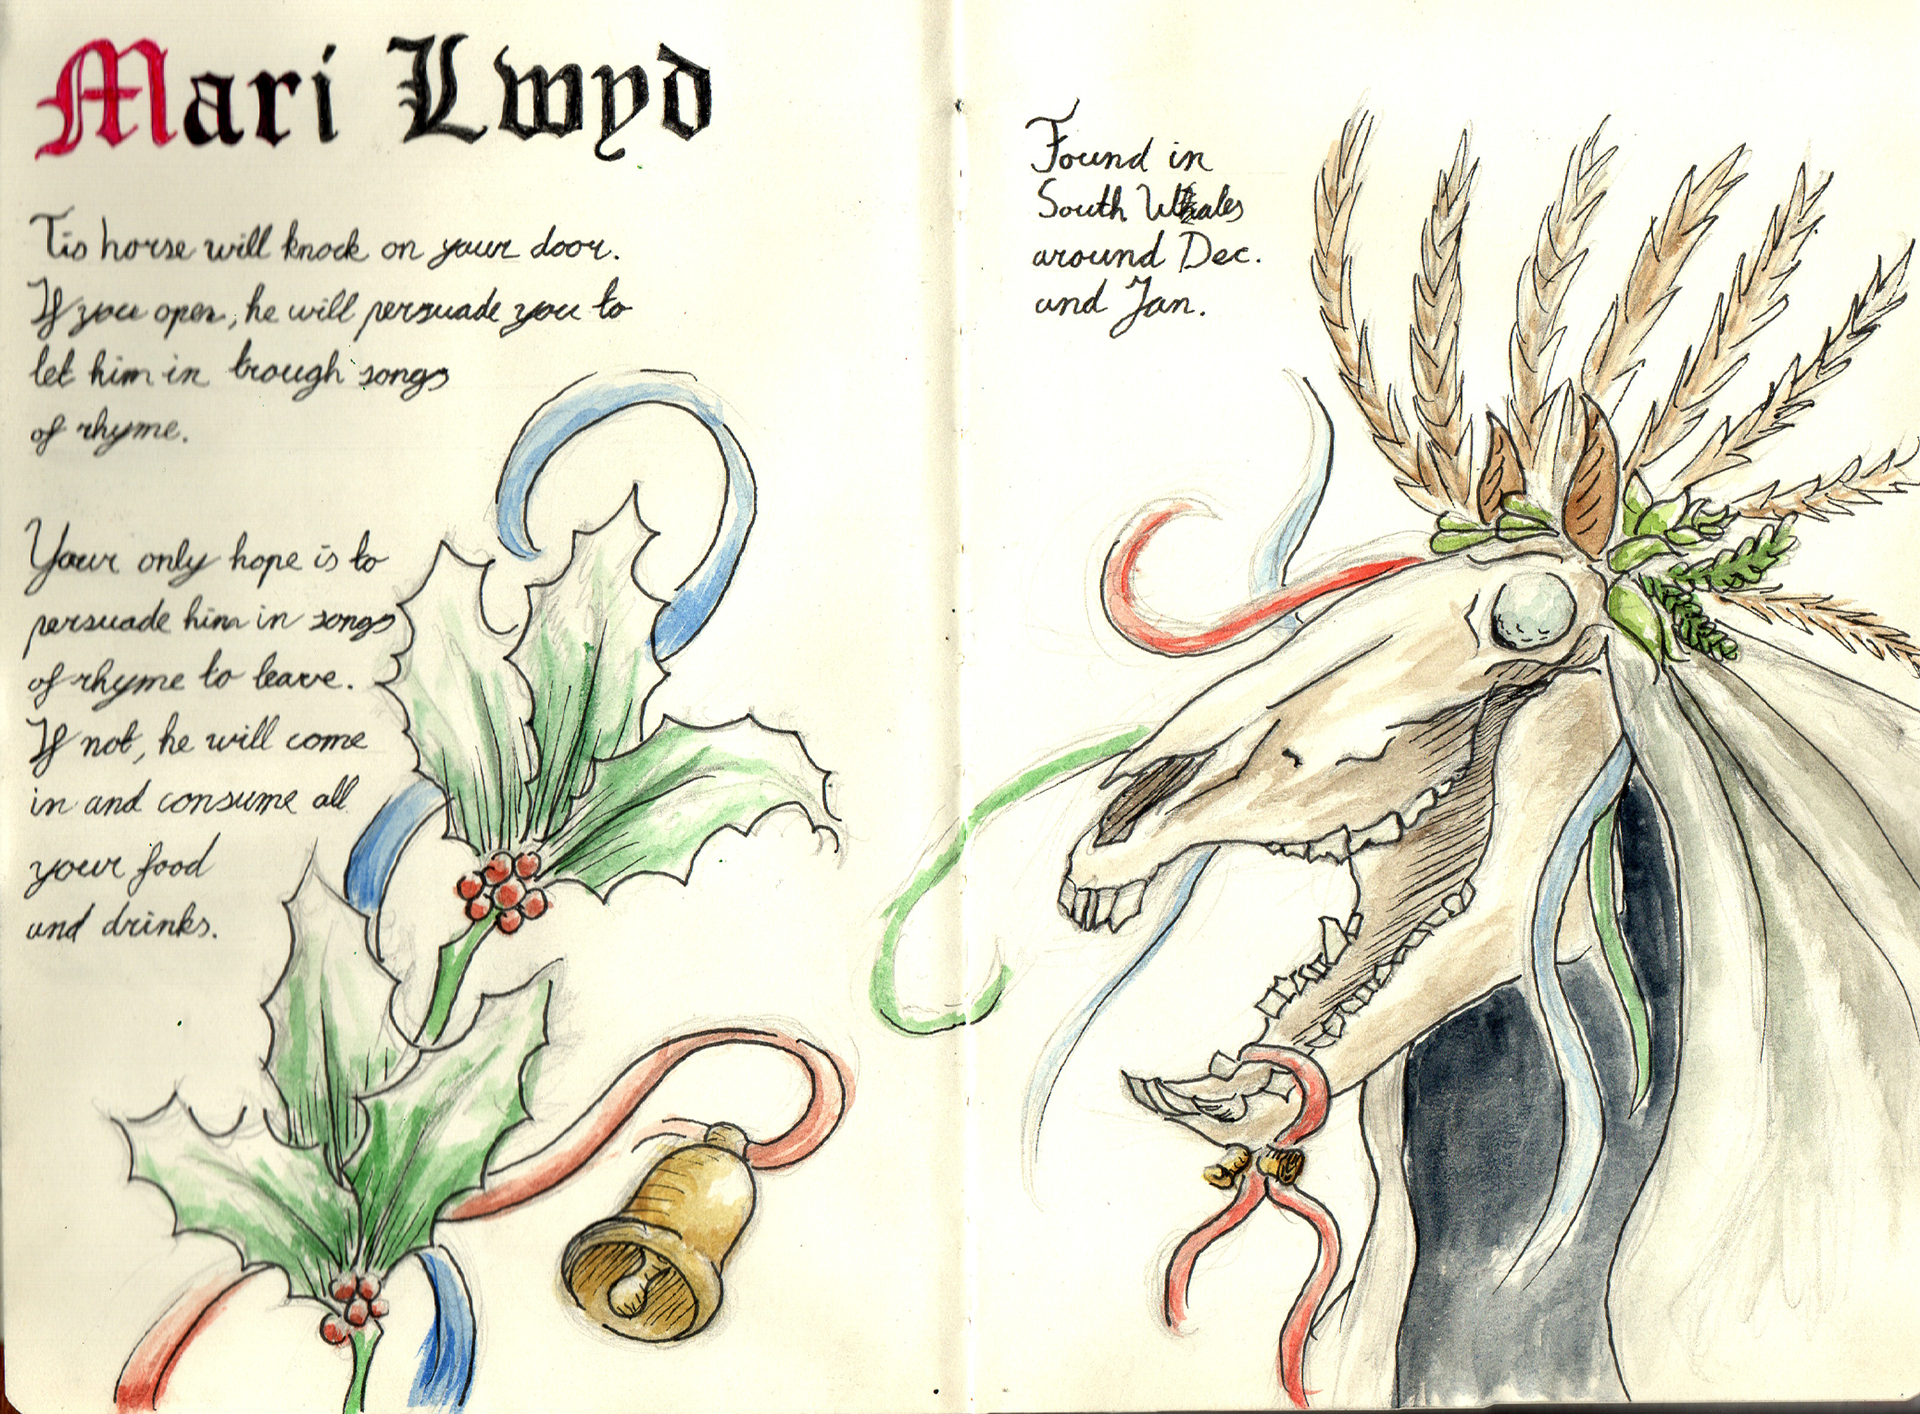 Mari Lwyd
Tis horse will knock on your door.
If you open, he will persuade you to
let him in trough songs
of rhyme.
Your only hope is to
persuade him in songs
of rhyme to leave.
If not, he will come
in and consume all
your food
and drinks.
Found in
South Whales
around Dec.
and Jan.